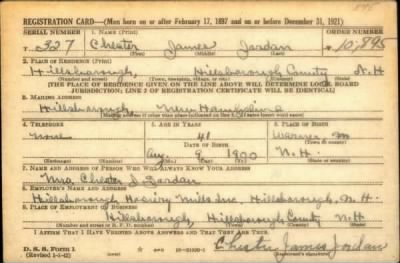 REGISTRATION CARD—(Men born on or after February 17, 1897 and on or before December 31, 1921)
SERIAL NUMBER 1. NAME (Print) ORDER NUMBER
T 327 Chester James Jordan 10,895
(First) (Middle) (Last)
2. PLACE OF RESIDENCE (Print)
Hillsborough, Hillsborough County N.H
(Number and street) (Town, township, village, or city) (County) (State)
[THE PLACE OF RESIDENCE GIVEN ON THE LINE ABOVE WILL DETERMINE LOCAL BOARD
JURISDICTION; LINE 2 OF REGISTRATION CERTIFICATE WILL BE IDENTICAL]
3. MAILING ADDRESS
Hillsborough, New Hampshire
[Mailing address if other than place indicated on line 2. If same insert word same]
4. TELEPHONE 5. AGE IN YEARS 6. PLACE OF BIRTH
none 41 Warner
DATE OF BIRTH
Aug. 9 1900 N.H.
(Exchange) (Number) (Mo.) (Day) (Yr.) (State or country)
7. NAME AND ADDRESS OF PERSON WHO WILL ALWAYS KNOW YOUR ADDRESS
Mrs. Chester J. Jordan
8. EMPLOYER'S NAME AND ADDRESS
Hillsborough Hosiery Mills Inc. Hillsboro, N.H.
9. PLACE OF EMPLOYMENT OR BUSINESS
Hillsborough, Hillsborough County N.H
(Number and street or R. F. D. number) (Town) (County) (State)
I AFFIRM THAT I HAVE VERIFIED ABOVE ANSWERS AND THAT THEY ARE TRUE.
D. S. S. Form 1
(Revised 1-1-42) (over) Chester James Jordan
(Registrant's signature)